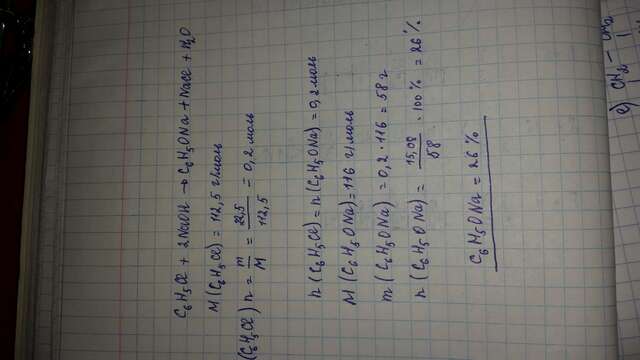 C₆H₅Cl + 2NaOH → C₆H₅ONa + NaCl + H₂O
M(C₆H₅Cl) = 112,5 г/моль
(C₆H₅Cl) n = m/M = 22,5/112,5 = 0,2 моль
n(C₆H₅Cl) = n(C₆H₅ONa) = 0,2 моль
M(C₆H₅ONa) = 116 г/моль
m(C₆H₅ONa) = 0,2 · 116 = 58 г
η(C₆H₅ONa) = 15,08/58 · 100% = 26%
C₆H₅ONa = 26%
e) CH₂ – CH₂